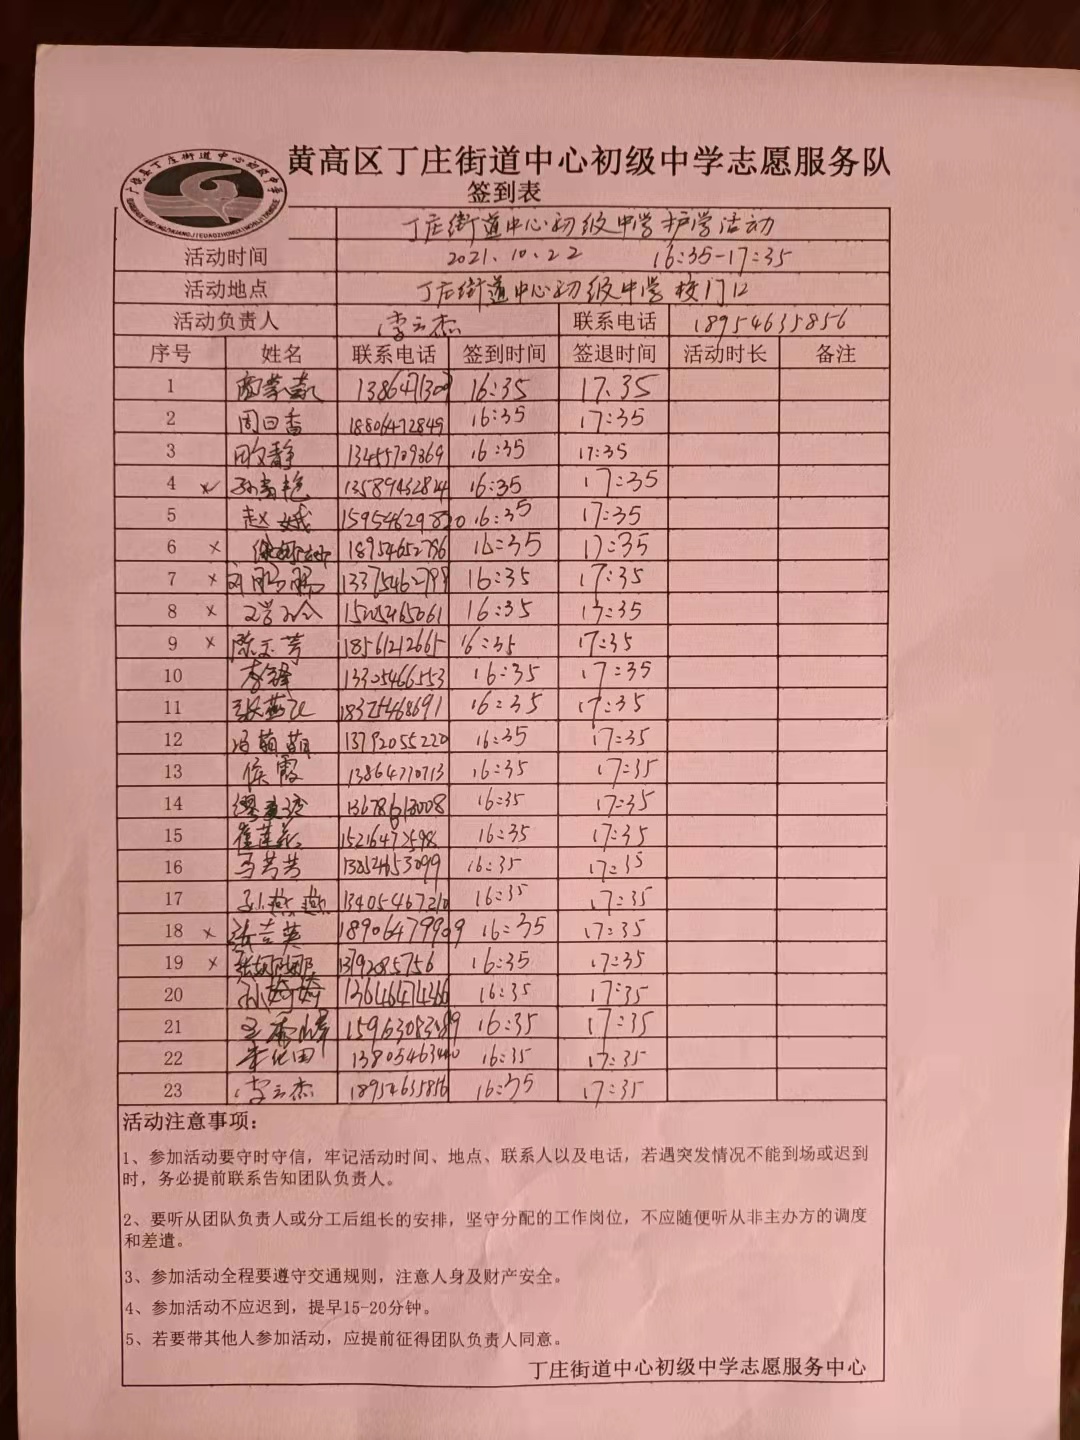 黄高区丁庄街道中心初级中学志愿服务队
签到表
丁庄街道中心初级中学护学活动
活动时间 2021.10.22 16:35-17:35
活动地点 丁庄街道中心初级中学校门口
活动负责人 李云杰 联系电话 18954635856
序号 姓名 联系电话 签到时间 签退时间 活动时长 备注
1 16:35 17:35
2 周曰香 18806472849 16:35 17:35
3 田文静 13455709369 16:35 17:35
4 × 16:35 17:35
5 赵娥 16:35 17:35
6 × 18954652796 16:35 17:35
7 × 刘鹏鹏 16:35 17:35
8 × 16:35 17:35
9 × 陈玉芳 18561212665 16:35 17:35
10 李锋 13305466553 16:35 17:35
11 张燕飞 18325468691 16:35 17:35
12 冯萌萌 13792055220 16:35 17:35
13 侯霞 13864710713 16:35 17:35
14 16:35 17:35
15 16:35 17:35
16 马芳芳 16:35 17:35
17 孙燕燕 13405467210 16:35 17:35
18 × 张吉英 16:35 17:35
19 × 张娜娜 16:35 17:35
20 孙婷婷 16:35 17:35
21 16:35 17:35
22 16:35 17:35
23 李云杰 18954635856 16:35 17:35
活动注意事项：
1、参加活动要守时守信，牢记活动时间、地点、联系人以及电话，若遇突发情况不能到场或迟到
时，务必提前联系告知团队负责人。
2、要听从团队负责人或分工后组长的安排，坚守分配的工作岗位，不应随便听从非主办方的调度
和差遣。
3、参加活动全程要遵守交通规则，注意人身及财产安全。
4、参加活动不应迟到，提早15-20分钟。
5、若要带其他人参加活动，应提前征得团队负责人同意。
丁庄街道中心初级中学志愿服务中心